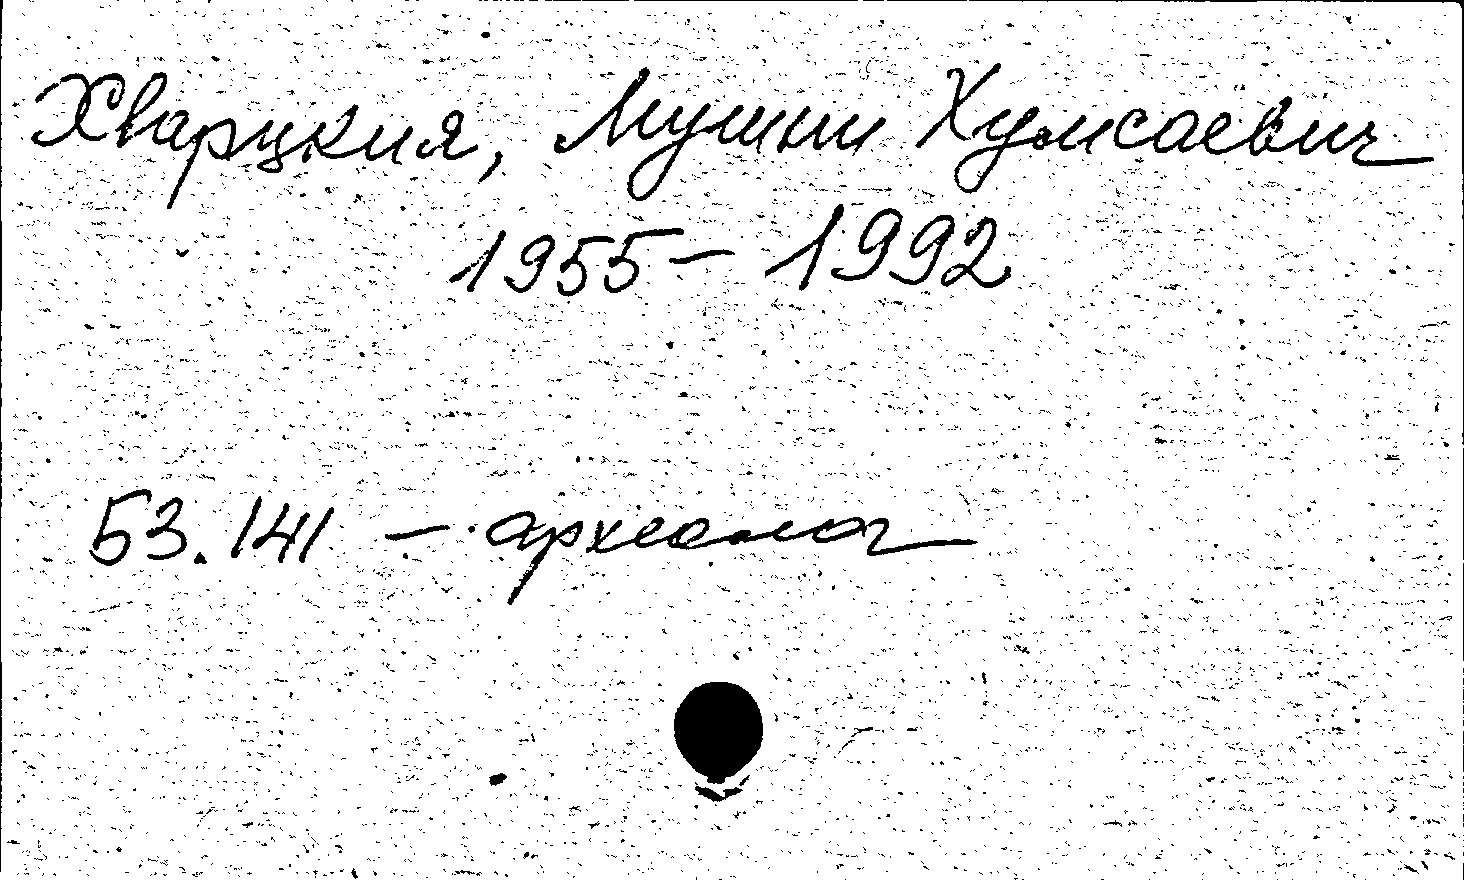 Хварцкия, Мушни Хумсаевич
1955 – 1992
53.141 – археолог